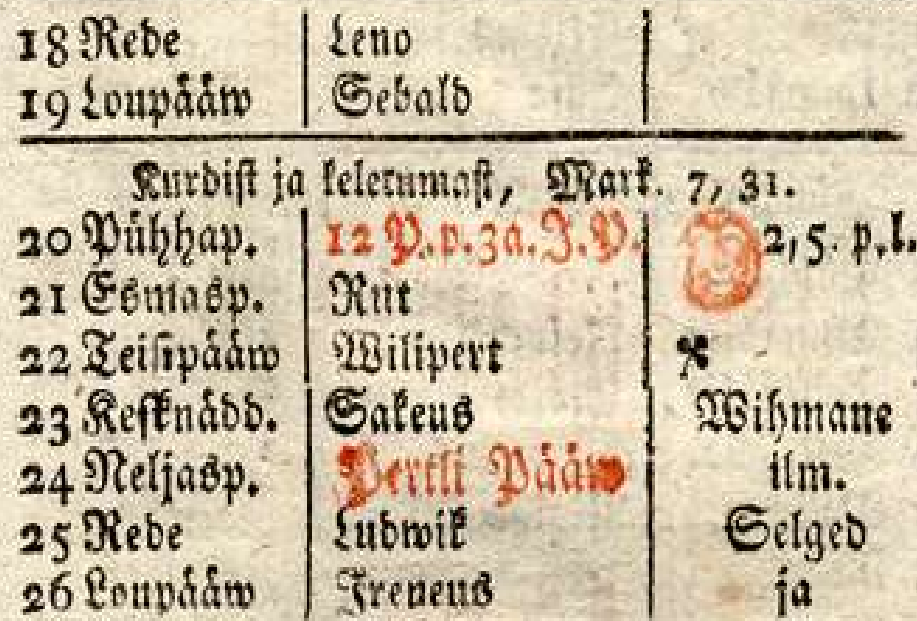 18 Rede Leno
19 Loupääw Sebald
Kurdist ja keletumast, Mark. 7, 31.
20 Pühhap. 12 P. p. 3a. J. P. 2, 5. p. l.
21 Esmasp. Rut
22 Teisipääw Wilipert
23 Kesknädd. Sakeus Wihmane
24 Neljasp. Pertli Pääw ilm.
25 Rede Ludwik Selged
26 Loupääw Ireneus ja